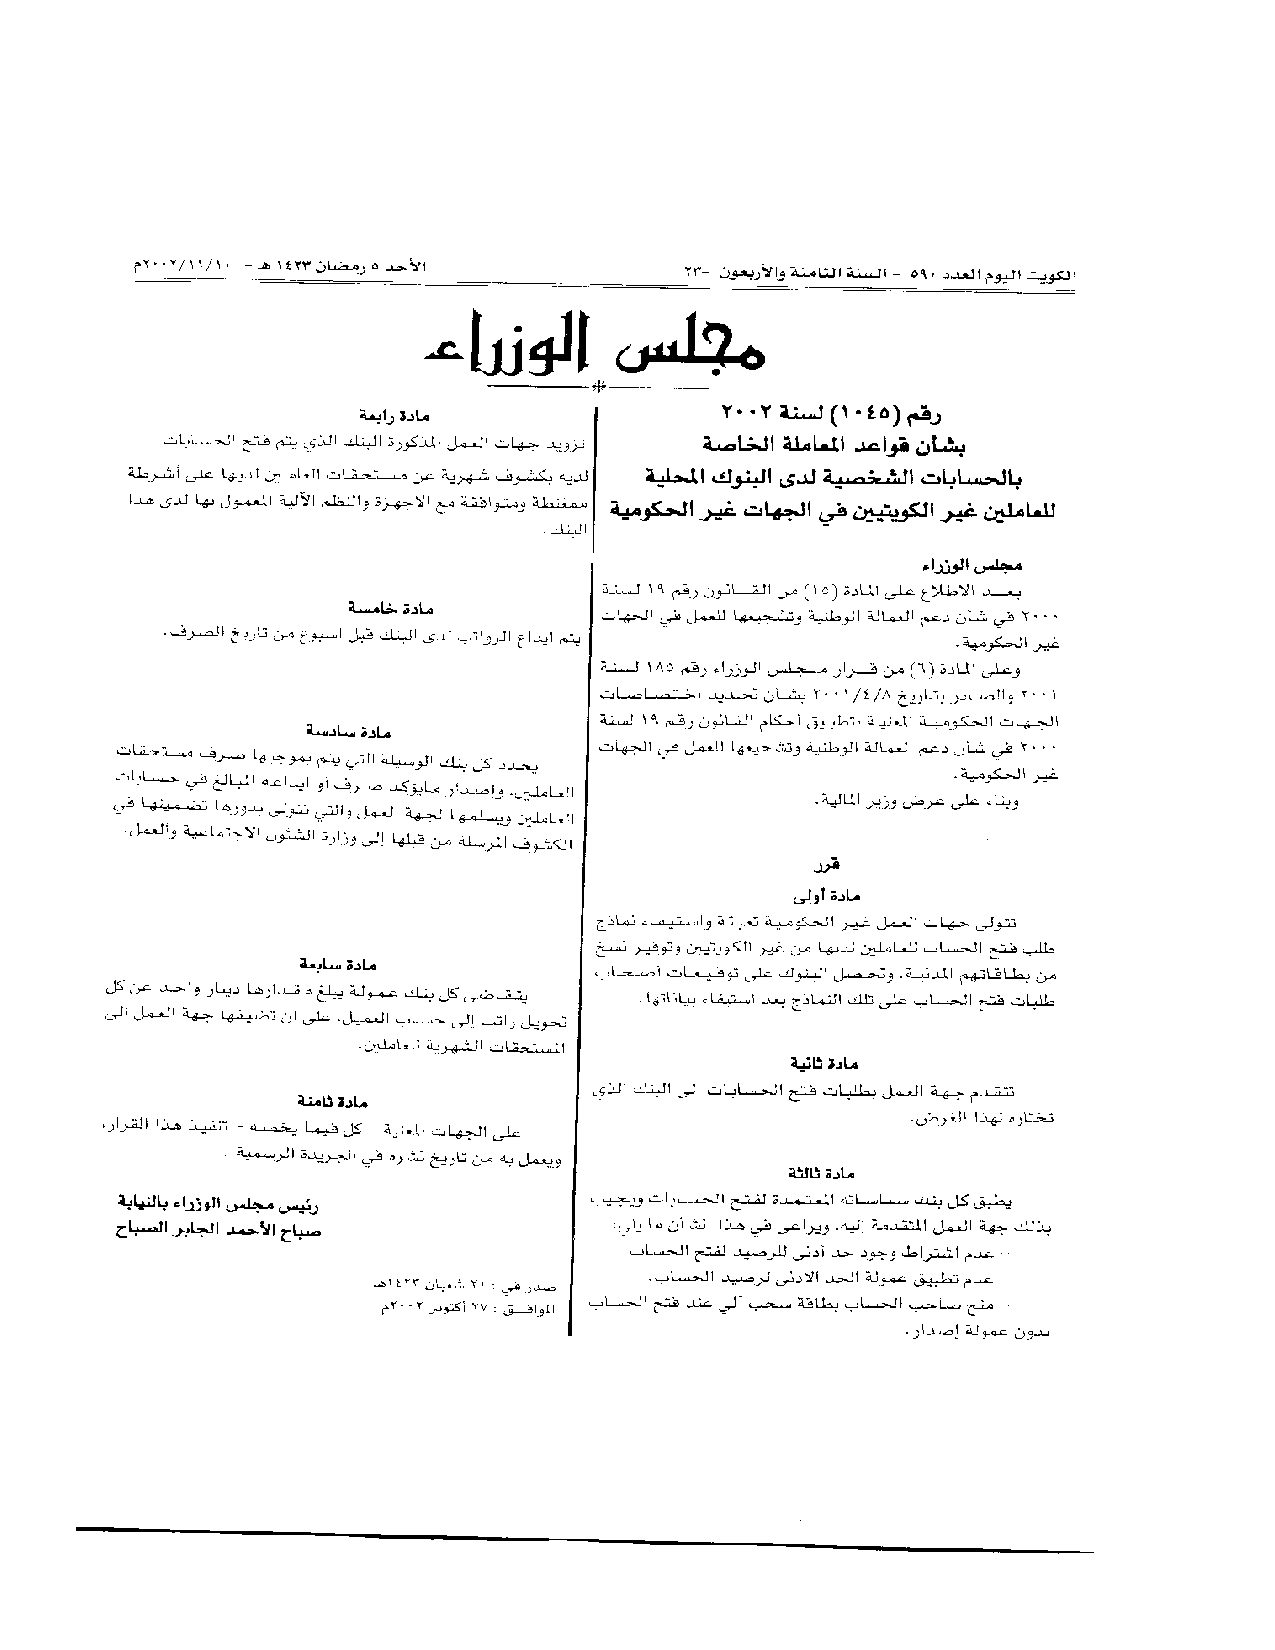 الكويت اليوم العدد ٥٩٠ - السنة الثامنة والأربعون -٢٣
الأحد ٥ رمضان ١٤٢٣ هـ - ٢٠٠٢/١١/١٠م
مجلس الوزراء
رقم (١٠٤٥) لسنة ٢٠٠٢
بشأن قواعد المعاملة الخاصة
بالحسابات الشخصية لدى البنوك المحلية
للعاملين غير الكويتيين في الجهات غير الحكومية
مجلس الوزراء
بعد الاطلاع على المادة (١٥) من القانون رقم ١٩ لسنة
٢٠٠٠ في شأن دعم العمالة الوطنية وتشجيعها للعمل في الجهات
غير الحكومية.
وعلى المادة (٦) من قرار مجلس الوزراء رقم ١٨٥ لسنة
٢٠٠١ والصادر بتاريخ ٢٠٠١/٤/٨ بشأن تحديد اختصاصات
الجهات الحكومية المعنية بتطبيق أحكام القانون رقم ١٩ لسنة
٢٠٠٠ في شأن دعم العمالة الوطنية وتشجيعها للعمل في الجهات
غير الحكومية.
وبناء على عرض وزير المالية.
قرر
مادة أولى
تتولى جهات العمل غير الحكومية تعبئة واستيفاء نماذج
طلب فتح الحساب للعاملين لديها من غير الكويتيين وتوفير نسخ
من بطاقاتهم المدنية. وتحصل البنوك على توقيعات أصحاب
طلبات فتح الحساب على تلك النماذج بعد استيفاء بياناتها.
مادة ثانية
تتقدم جهة العمل بطلبات فتح الحسابات إلى البنك الذي
تختاره لهذا الغرض.
مادة ثالثة
يطبق كل بنك سياساته المعتمدة لفتح الحسابات ويجيب
بذلك جهة العمل المتقدمة إليه. ويراعى في هذا الشأن ما يلي:
- عدم اشتراط وجود حد أدنى للرصيد لفتح الحساب
عدم تطبيق عمولة الحد الادنى لرصيد الحساب.
- منح صاحب الحساب بطاقة سحب آلي عند فتح الحساب
بدون عمولة إصدار.
مادة رابعة
تزويد جهات العمل المذكورة البنك الذي يتم فتح الحسابات
لديه بكشوف شهرية عن مستحقات العاملين لديها على أشرطة
ممغنطة ومتوافقة مع الاجهزة والنظم الآلية المعمول بها لدى هذا
البنك.
مادة خامسة
يتم ايداع الرواتب لدى البنك قبل اسبوع من تاريخ الصرف.
مادة سادسة
يحدد كل بنك الوسيلة التي يتم بموجبها صرف مستحقات
العاملين، وإصدار مايؤكد صرف أو ايداعه المبالغ في حسابات
العاملين ويسلمها لجهة العمل والتي تتولى بدورها تضمينها في
الكشوف المرسلة من قبلها إلى وزارة الشئون الاجتماعية والعمل.
مادة سابعة
يتقاضى كل بنك عمولة يبلغ مقدارها دينار واحد عن كل
تحويل راتب إلى حساب العميل. على ان تضيفها جهة العمل الى
المستحقات الشهرية للعاملين.
مادة ثامنة
على الجهات المعنية - كل فيما يخصه - تنفيذ هذا القرار،
ويعمل به من تاريخ نشره في الجريدة الرسمية.
رئيس مجلس الوزراء بالنيابة
صباح الأحمد الجابر الصباح
صدر في : ٢١ شعبان ١٤٢٣هـ
الموافق : ٢٧ أكتوبر ٢٠٠٢م